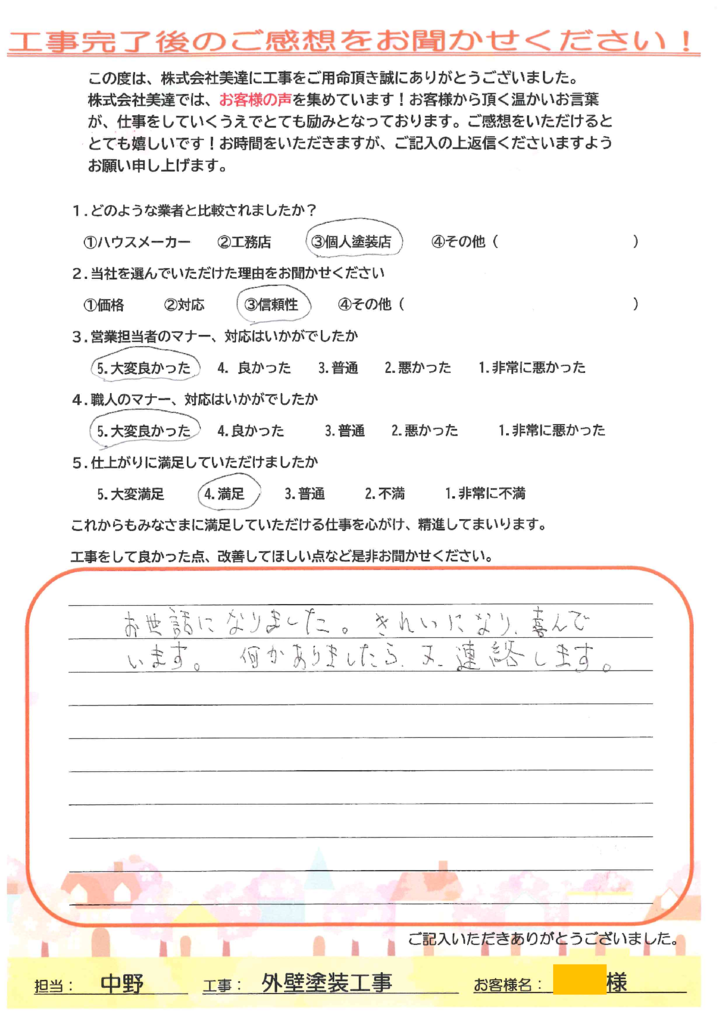 工事完了後のご感想をお聞かせください！
この度は、株式会社美達に工事をご用命頂き誠にありがとうございました。
株式会社美達では、お客様の声を集めています！お客様から頂く温かいお言葉
が、仕事をしていくうえでとても励みとなっております。ご感想をいただけると
とても嬉しいです！お時間をいただきますが、ご記入の上返信くださいますよう
お願い申し上げます。
１.どのような業者と比較されましたか？
①ハウスメーカー ②工務店 ③個人塗装店 ④その他（ ）
２.当社を選んでいただけた理由をお聞かせください
①価格 ②対応 ③信頼性 ④その他（ ）
３.営業担当者のマナー、対応はいかがでしたか
5.大変良かった 4. 良かった 3.普通 2.悪かった 1.非常に悪かった
４.職人のマナー、対応はいかがでしたか
5.大変良かった 4.良かった 3.普通 2.悪かった 1.非常に悪かった
５.仕上がりに満足していただけましたか
5.大変満足 4.満足 3.普通 2.不満 1.非常に不満
これからもみなさまに満足していただける仕事を心がけ、精進してまいります。
工事をして良かった点、改善してほしい点など是非お聞かせください。
お世話になりました。きれいになり、喜んで
います。 何かありましたら、又、連絡します。
ご記入いただきありがとうございました。
担当： 中野 工事： 外壁塗装工事 お客様名： 様